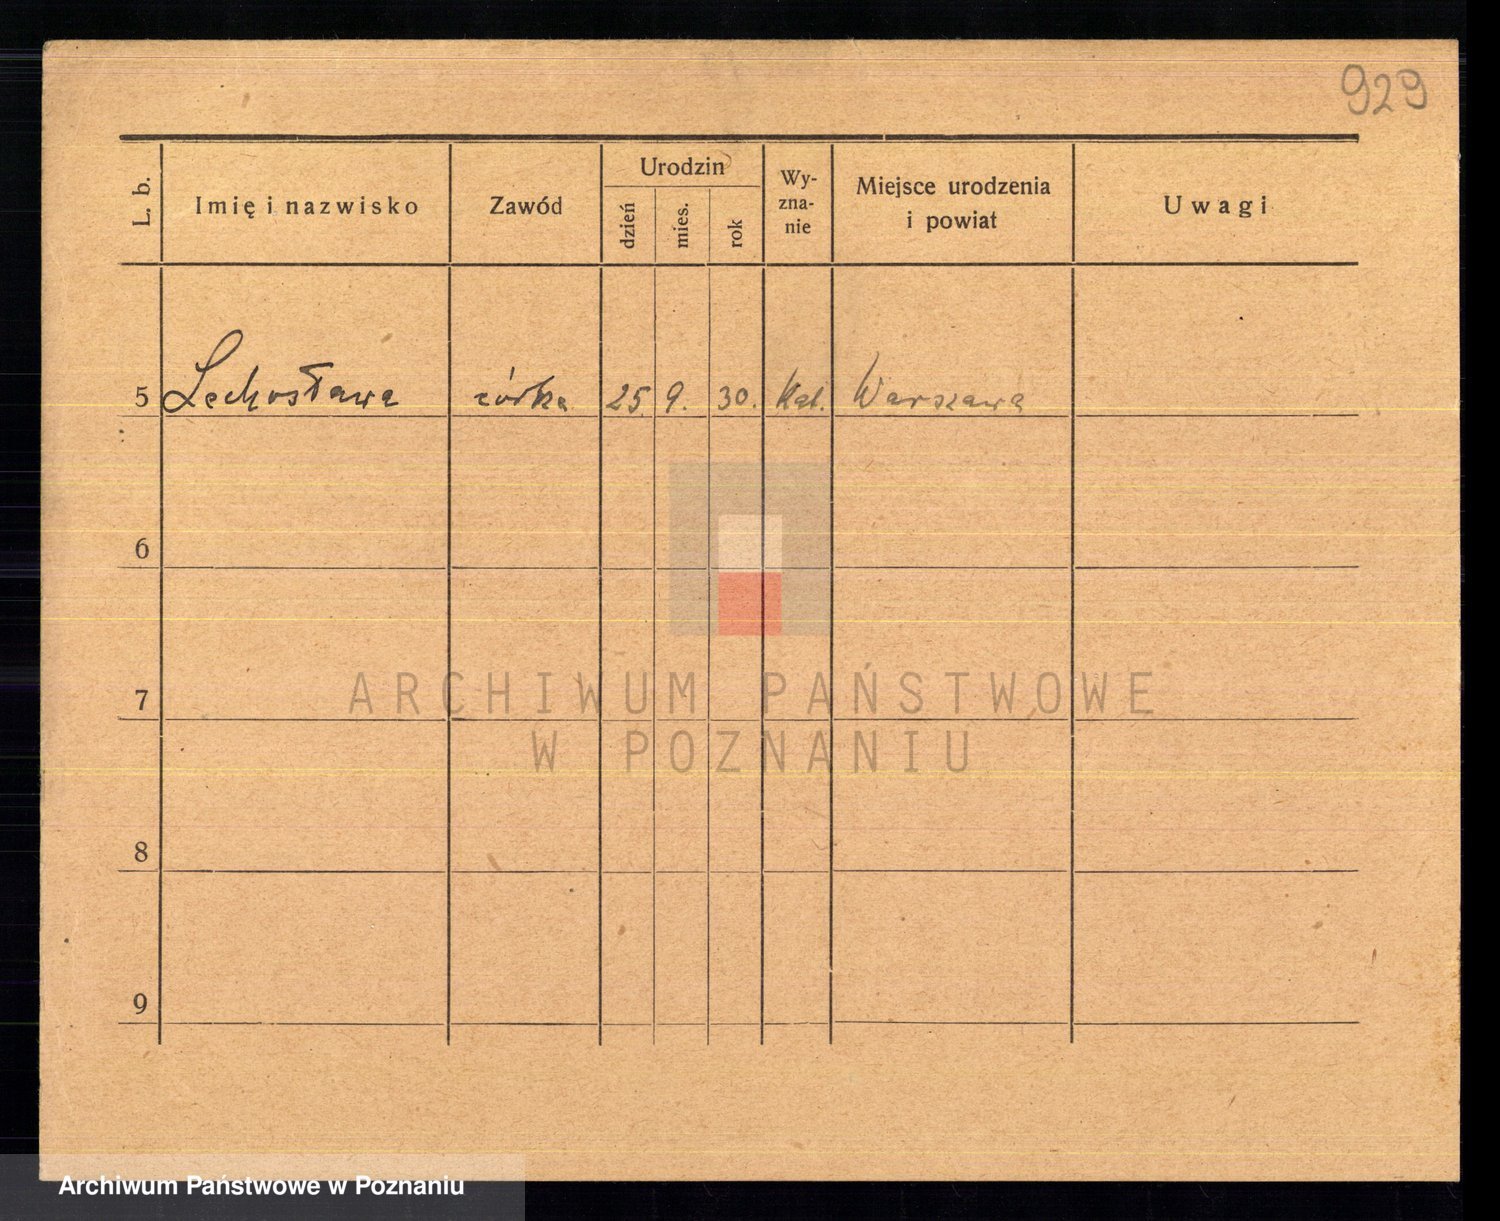 929
L. b.
Imię i nazwisko
Zawód
Urodzin
dzień
mies.
rok
Wy-
zna-
nie
Miejsce urodzenia
i powiat
Uwagi
5 Lechosława córka 25 9. 30. Kat. Warszawa
6
7
8
9
ARCHIWUM PAŃSTWOWE
W POZNANIU
Archiwum Państwowe w Poznaniu